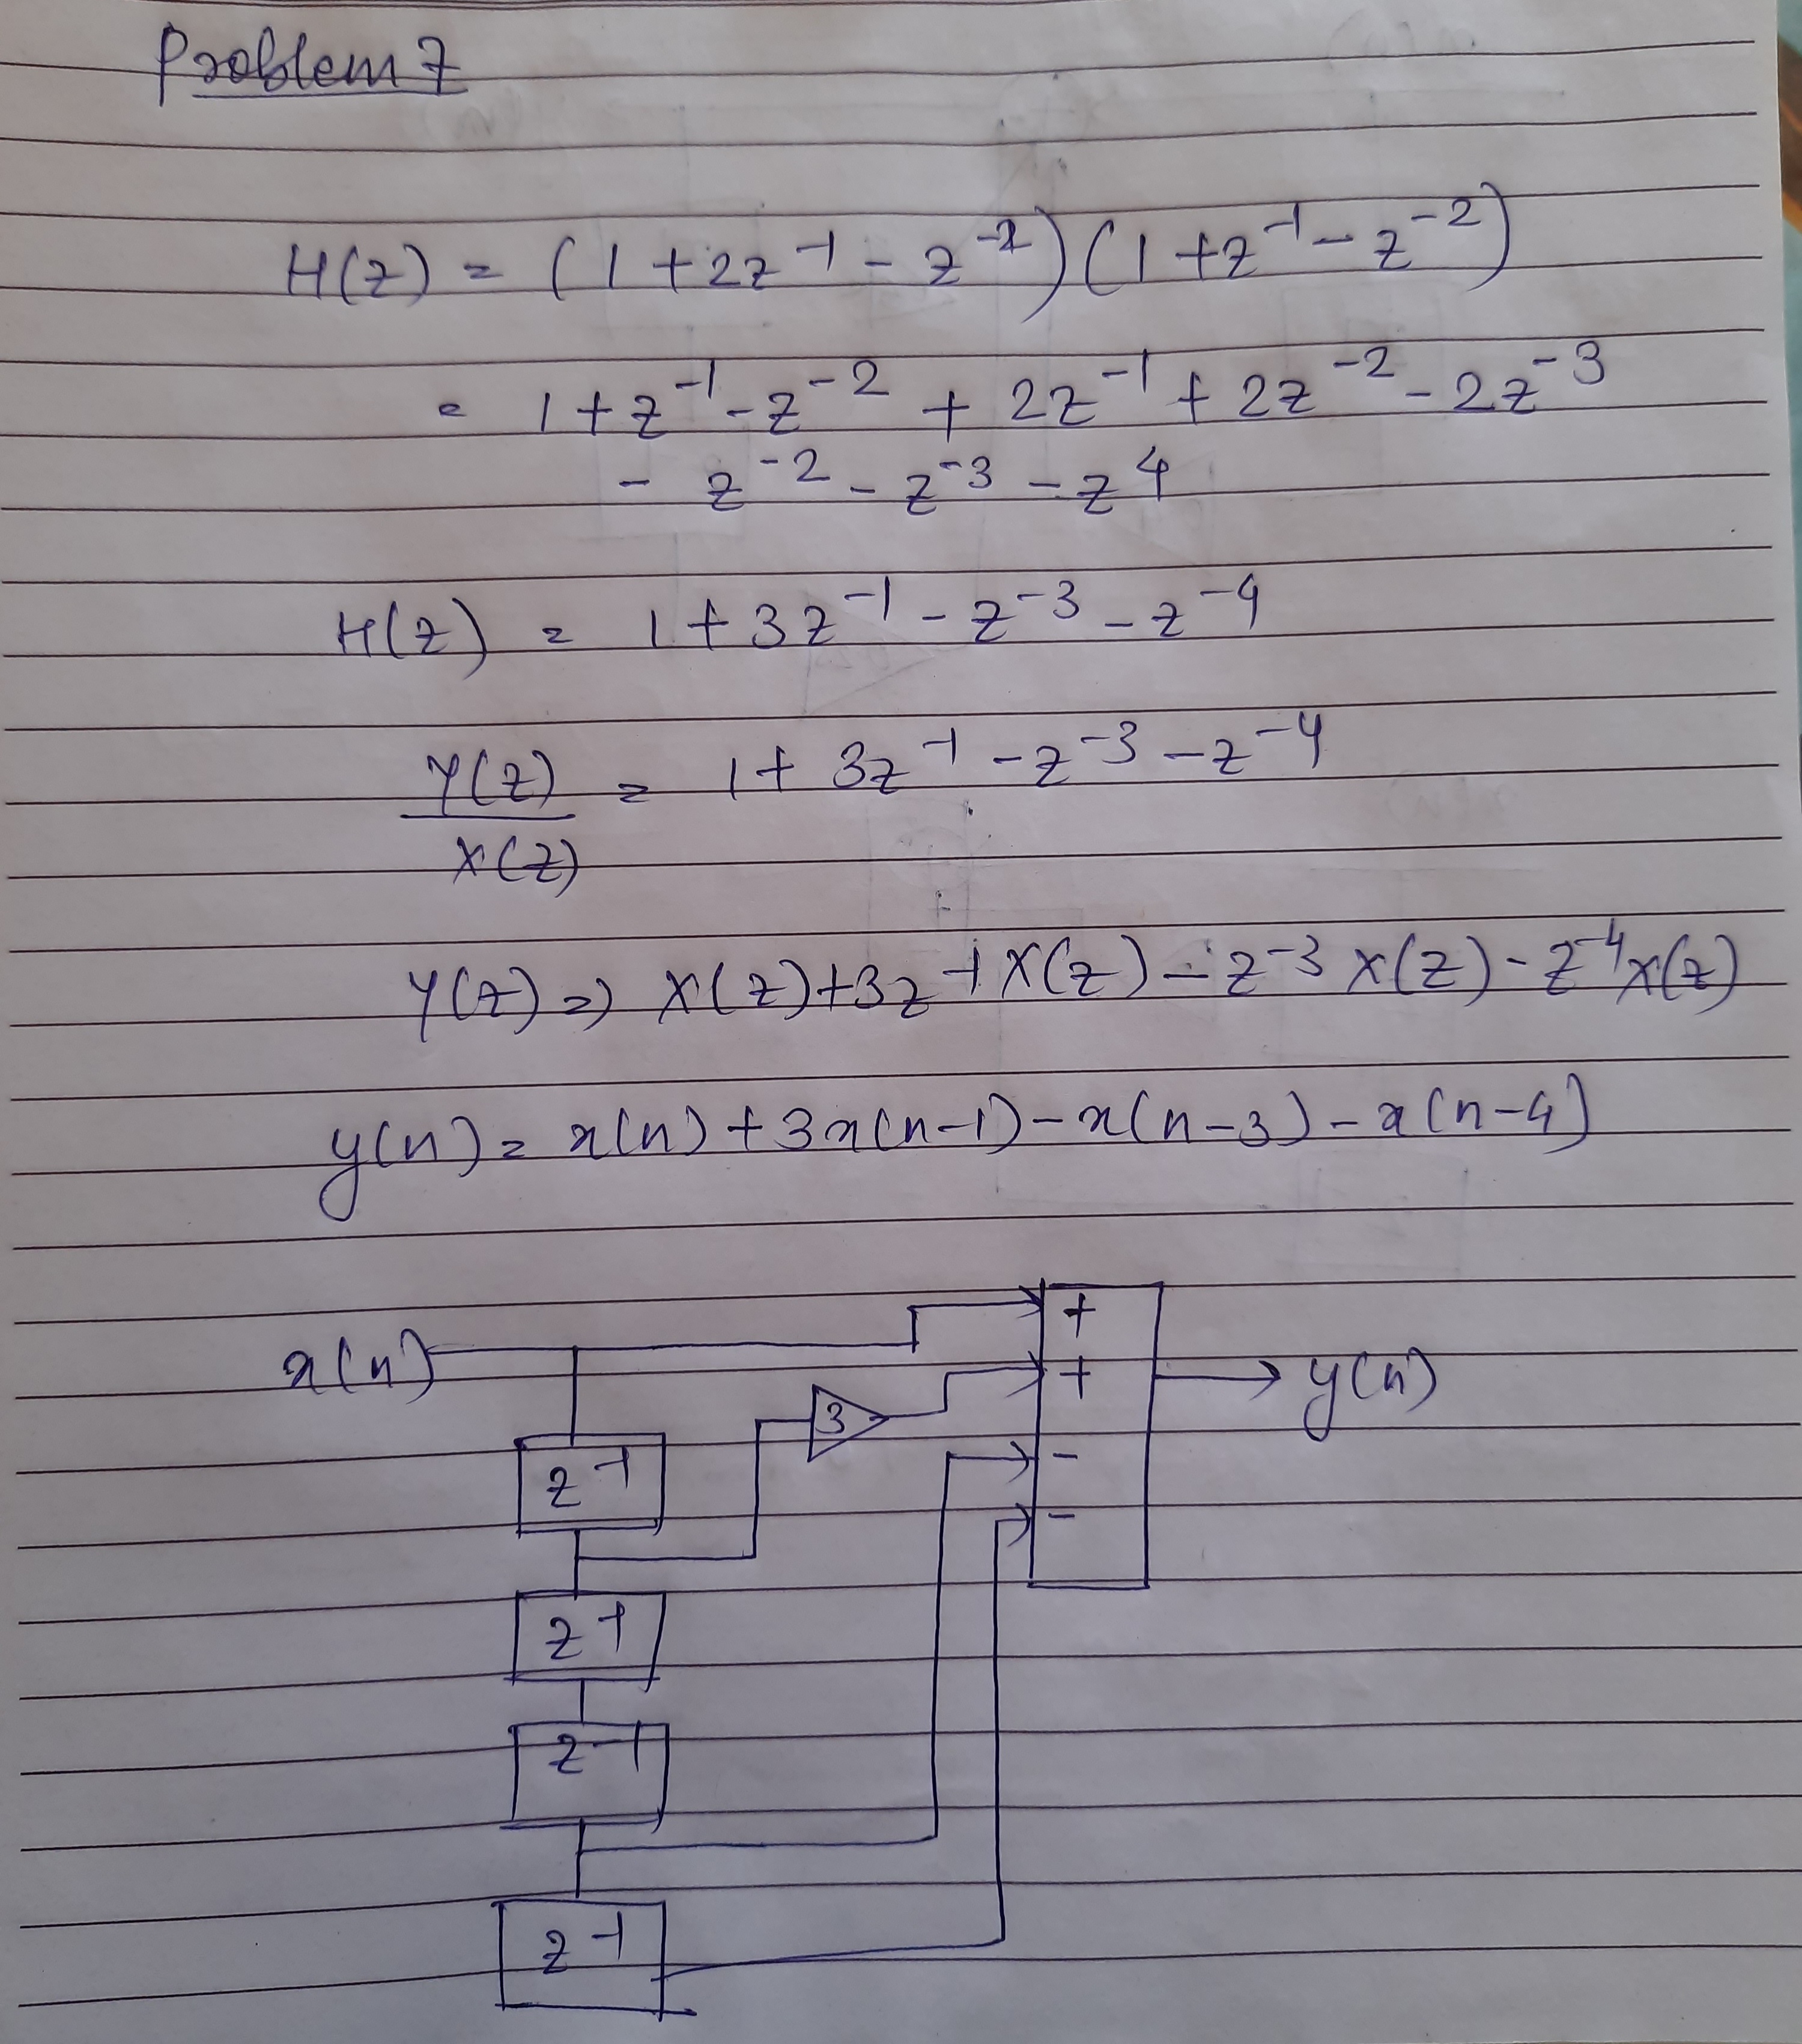 Problem 7
H(z) = (1 + 2z⁻¹ - z⁻²)(1 + z⁻¹ - z⁻²)
= 1 + z⁻¹ - z⁻² + 2z⁻¹ + 2z⁻² - 2z⁻³
- z⁻² - z⁻³ - z⁴
H(z) = 1 + 3z⁻¹ - z⁻³ - z⁻⁴
Y(z) = 1 + 3z⁻¹ - z⁻³ - z⁻⁴
X(z)
Y(z) => X(z) + 3z⁻¹X(z) - z⁻³X(z) - z⁻⁴X(z)
y(n) = x(n) + 3x(n-1) - x(n-3) - x(n-4)
+
x(n)
+
y(n)
3
-
z⁻¹
-
z⁻¹
z⁻¹
z⁻¹